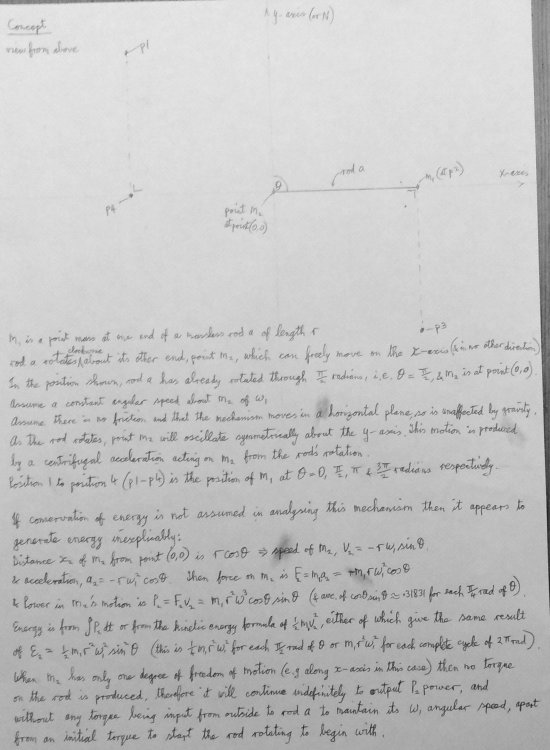 Concept
y-axis (or N)
view from above
p1
rod a
m₁ (at p2)
x-axis
θ
p4
point m₂
at point (0,0)
p3
m₁ is a point mass at one end of a massless rod a of length r
rod a rotates clockwise about its other end, point m₂, which can freely move on the x-axis (& in no other direction)
In the position shown, rod a has already rotated through π/2 radians, i.e. θ = π/2, & m₂ is at point (0,0).
Assume a constant angular speed about m₂ of ω₁
Assume there is no friction and that the mechanism moves in a horizontal plane, so is unaffected by gravity.
As the rod rotates, point m₂ will oscillate symmetrically about the y-axis. This motion is produced
by a centrifugal acceleration acting on m₂ from the rod's rotation.
Position 1 to position 4 (p1-p4) is the position of m₁ at θ=0, π/2, π & 3π/2 radians respectively.
If conservation of energy is not assumed in analysing this mechanism then it appears to
generate energy inexplicably:
Distance x₂ of m₂ from point (0,0) is r cosθ ⇒ speed of m₂, V₂ = -rω₁ sinθ.
& acceleration, a₂ = -rω₁² cosθ. Then force on m₂ is F₂=m₁a₂ = -m₁rω₁² cosθ
& Power in m₂'s motion is P₂ = F₂V₂ = m₁r²ω₁³ cosθ sinθ (& ave. of cosθ sinθ ≈ .31831 for each π/2 rad of θ).
Energy is from ∫P₂ dt or from the kinetic energy formula of ½mV₂², either of which give the same result
of E₂ = ½m₁r²ω₁² sin²θ (this is ½m₁r²ω₁² for each π/2 rad of θ or m₁r²ω₁² for each complete cycle of 2π rad).
When m₂ has only one degree of freedom of motion (e.g along x-axis in this case) then no torque
on the rod is produced, therefore it will continue indefinitely to output P₂ power, and
without any torque being input from outside to rod a to maintain its ω₁ angular speed, apart
from an initial torque to start the rod rotating to begin with.